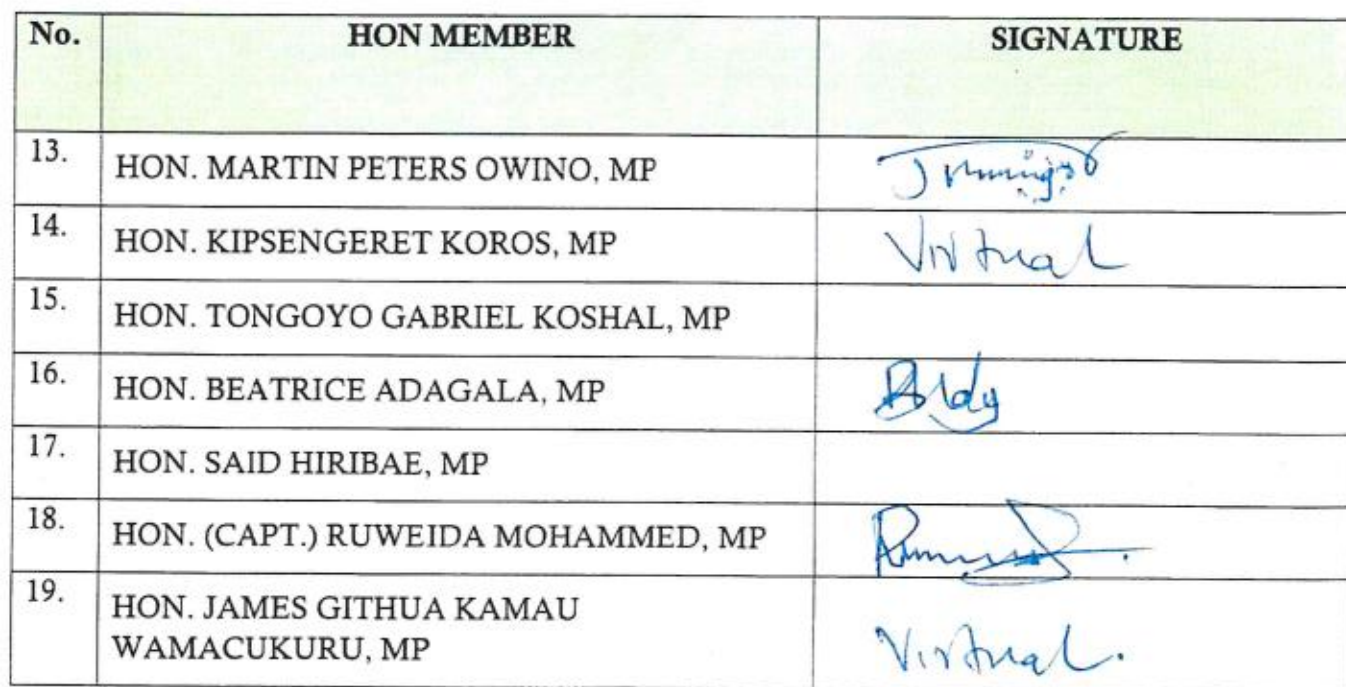 No. HON MEMBER SIGNATURE
13. HON. MARTIN PETERS OWINO, MP
14. HON. KIPSENGERET KOROS, MP Virtual
15. HON. TONGOYO GABRIEL KOSHAL, MP
16. HON. BEATRICE ADAGALA, MP
17. HON. SAID HIRIBAE, MP
18. HON. (CAPT.) RUWEIDA MOHAMMED, MP
19. HON. JAMES GITHUA KAMAU
WAMACUKURU, MP Virtual.